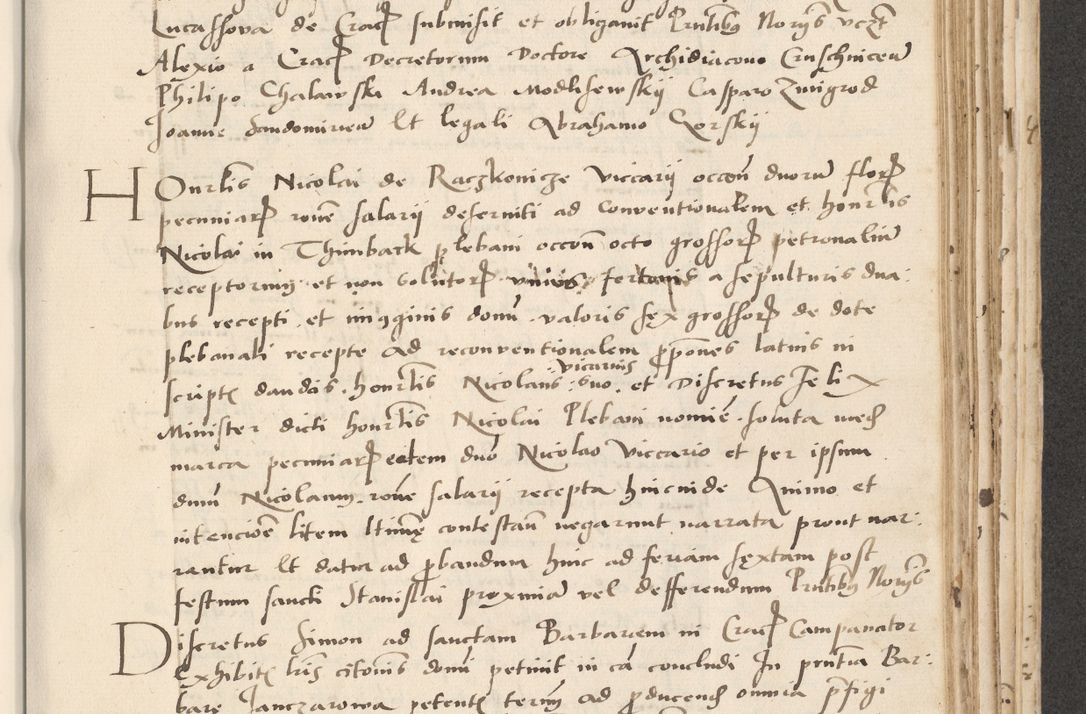 Lucassova de Crac submisit et obligavit Pntibus Nobis
Alexio a Crac Decretorum Doctore Archidiacono Cruschvicen
Philipo Chalawski Andrea Modlisewskij Casparo Zmigrod
Joanne Sandomirien Et legali Abrahamo Gorskij
Honrlis Nicolai de Raczkonicze Viccarij occon duoru flor
pecuniar rone salarij deserviti ad Conventionalem et honrlis
Nicolai in Thimback plebani occon octo grossor petronaliu
receptorum et non solutor unius fertonis a sepulturis dua:
bus recepti et imaginis domi valoris sex grossor de dote
plebanali recepte Ad reconventionalem ppones latius in
script dandas honrlis Nicolaus vicarius suo et Discretus Felix
Minister dicti honrlis Nicolai Plebani nomie soluta
marca pecuniar eidem dno Nicolao Viccario et per ipsum
dnum Nicolaum rone salarij recepta hincinde Animo et
intencioe litem ltime contestan negarunt narrata prout nar:
rantur Et datur ad pbandum hinc ad feriam sextam post
festum sancti Stanislai proximia vel defferendum Pntibus Nobis
Discretus Simon ad sanctam Barbarem in Crac Campanator
Exhibit lris citonis domi petiuit in ca concludi In pntia Bar:
bare Janczarowa petent termi ad pducend omnia pfigi